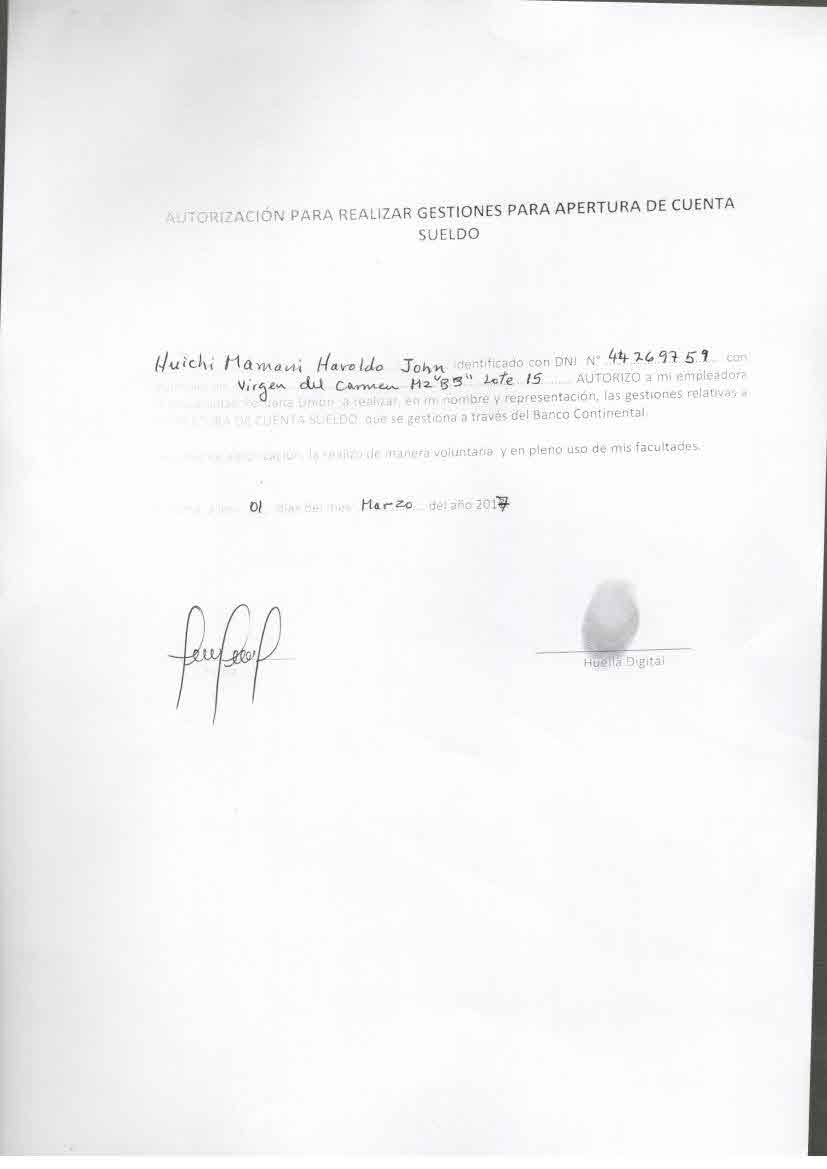 AUTORIZACIÓN PARA REALIZAR GESTIONES PARA APERTURA DE CUENTA
SUELDO
Huichi Mamani Haroldo John identificado con DNI N° 44269759 con
Virgen del Carmen Mz "BB" Lote 15 AUTORIZO a mi empleadora
Unión a realizar, en mi nombre y representación, las gestiones relativas a
DE CUENTA SUELDO, que se gestiona a través del Banco Continental.
la realizo de manera voluntaria y en pleno uso de mis facultades.
01 días del mes Marzo del año 2017
Huella Digital